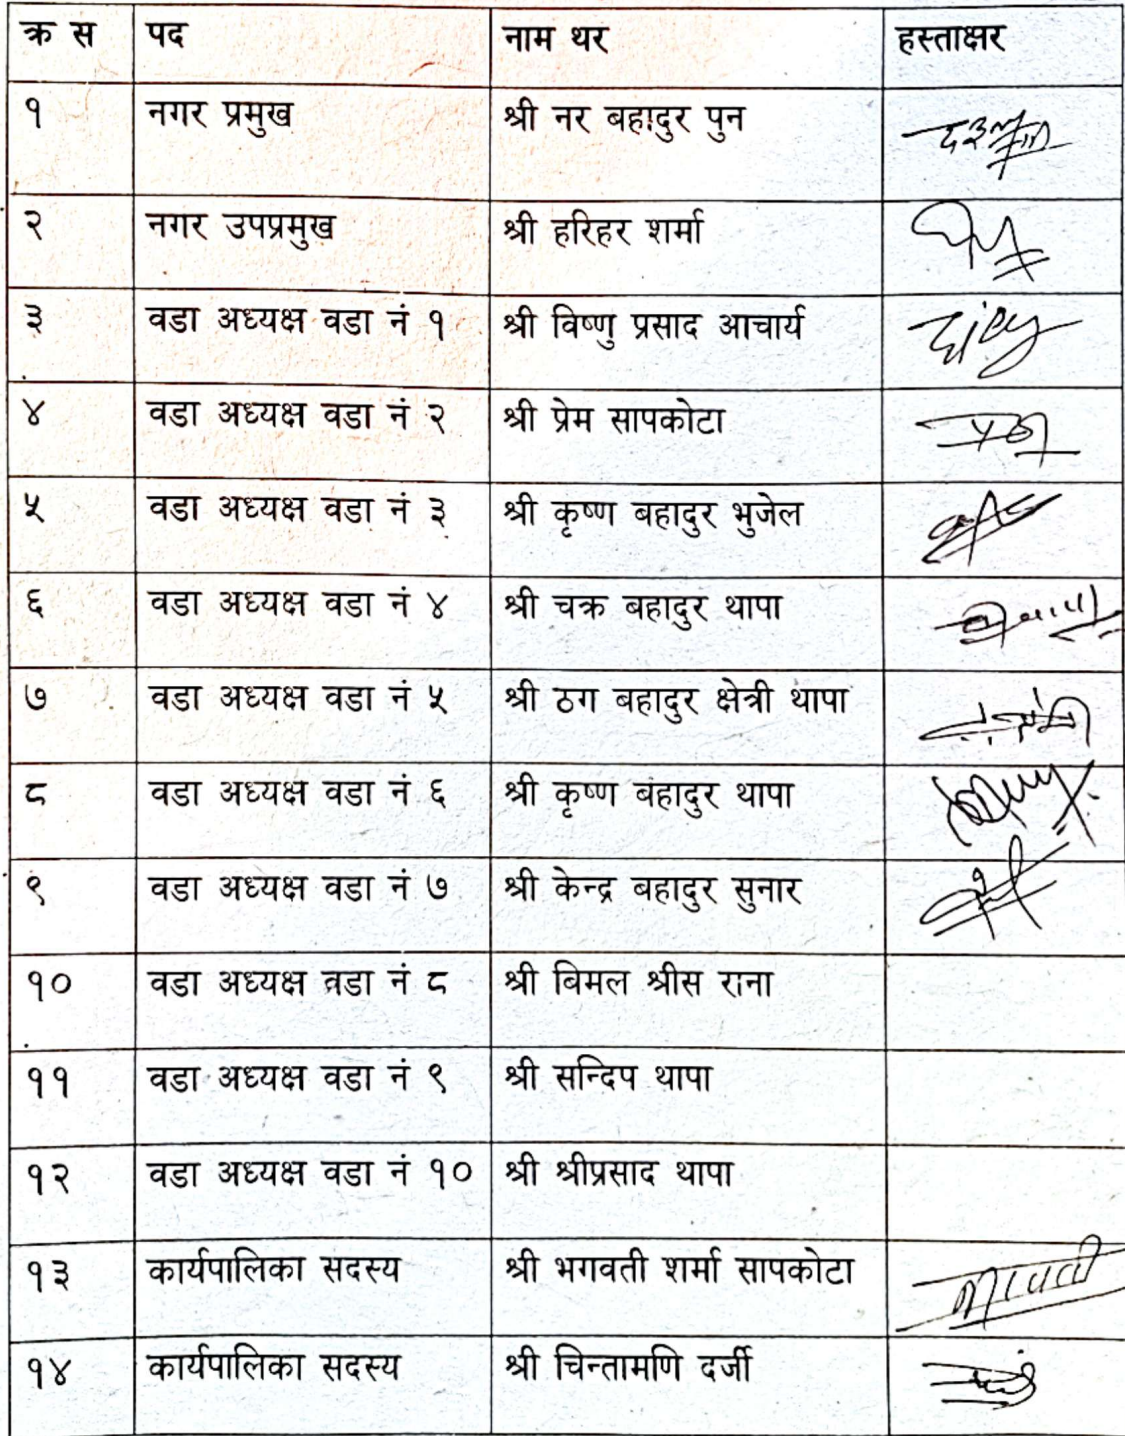 क्र स पद नाम थर हस्ताक्षर
१ नगर प्रमुख श्री नर बहादुर पुन
२ नगर उपप्रमुख श्री हरिहर शर्मा
३ वडा अध्यक्ष वडा नं १ श्री विष्णु प्रसाद आचार्य
४ वडा अध्यक्ष वडा नं २ श्री प्रेम सापकोटा
५ वडा अध्यक्ष वडा नं ३ श्री कृष्ण बहादुर भुजेल
६ वडा अध्यक्ष वडा नं ४ श्री चक्र बहादुर थापा
७ वडा अध्यक्ष वडा नं ५ श्री ठग बहादुर क्षेत्री थापा
८ वडा अध्यक्ष वडा नं ६ श्री कृष्ण बहादुर थापा
९ वडा अध्यक्ष वडा नं ७ श्री केन्द्र बहादुर सुनार
१० वडा अध्यक्ष वडा नं ८ श्री बिमल श्रीस राना
११ वडा अध्यक्ष वडा नं ९ श्री सन्दिप थापा
१२ वडा अध्यक्ष वडा नं १० श्री श्रीप्रसाद थापा
१३ कार्यपालिका सदस्य श्री भगवती शर्मा सापकोटा
१४ कार्यपालिका सदस्य श्री चिन्तामणि दर्जी